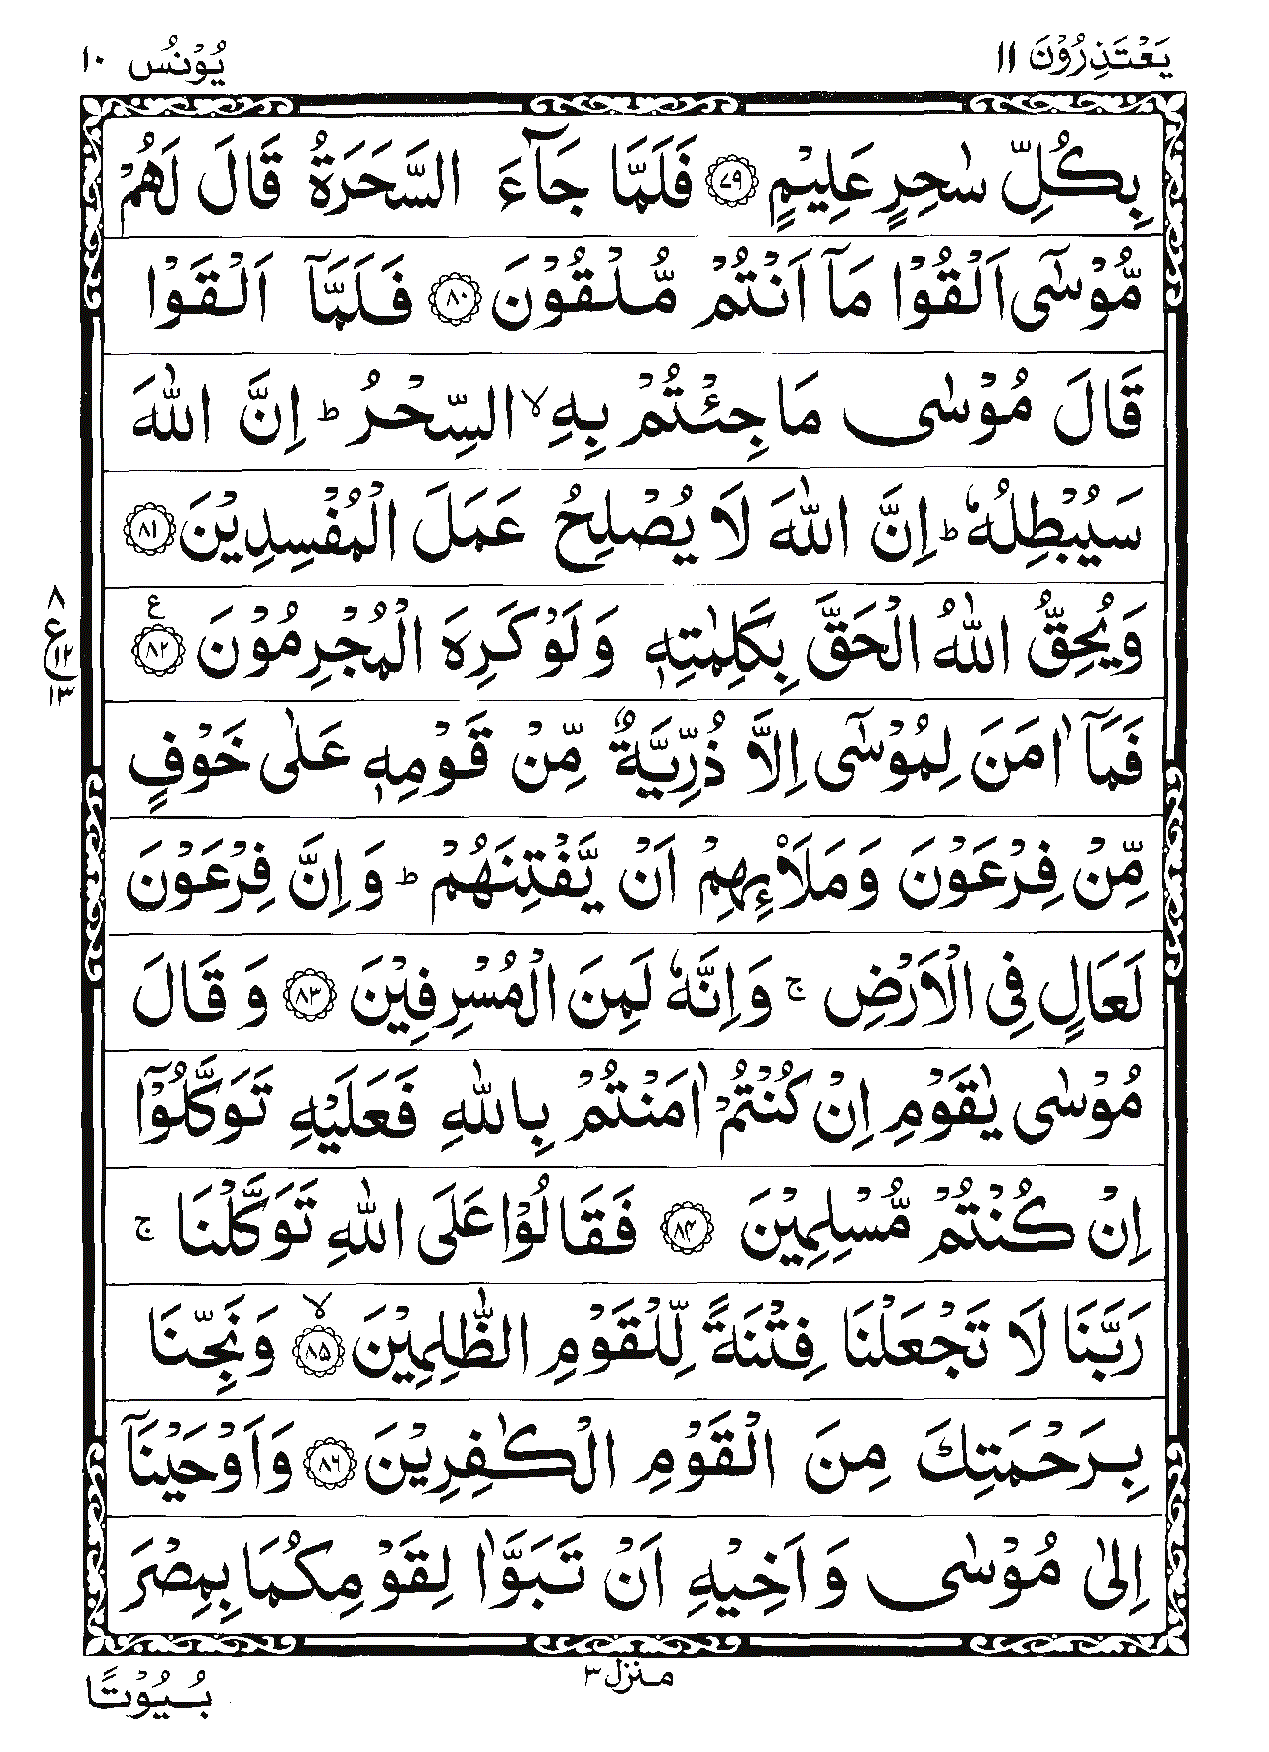 يَعْتَذِرُوْنَ ١١
يُوْنُس ١٠
بِكُلِّ سٰحِرٍ عَلِيْمٍ ﴿٧٩﴾ فَلَمَّا جَآءَ السَّحَرَةُ قَالَ لَهُمْ
مُّوْسٰٓى اَلْقُوْا مَآ اَنْتُمْ مُّلْقُوْنَ ﴿٨٠﴾ فَلَمَّآ اَلْقَوْا
قَالَ مُوْسٰى مَا جِئْتُمْ بِهِ ۙ السِّحْرُ ؕ اِنَّ اللّٰهَ
سَيُبْطِلُهٗ ؕ اِنَّ اللّٰهَ لَا يُصْلِحُ عَمَلَ الْمُفْسِدِيْنَ ﴿٨١﴾
وَيُحِقُّ اللّٰهُ الْحَقَّ بِكَلِمٰتِهٖ وَلَوْ كَرِهَ الْمُجْرِمُوْنَ ﴿٨٢﴾ ع
٨
ع ١٢
١٣
فَمَآ اٰمَنَ لِمُوْسٰٓى اِلَّا ذُرِّيَّةٌ مِّنْ قَوْمِهٖ عَلٰى خَوْفٍ
مِّنْ فِرْعَوْنَ وَمَلَا۟ئِهِمْ اَنْ يَّفْتِنَهُمْ ؕ وَاِنَّ فِرْعَوْنَ
لَعَالٍ فِى الْاَرْضِ ۚ وَاِنَّهٗ لَمِنَ الْمُسْرِفِيْنَ ﴿٨٣﴾ وَقَالَ
مُوْسٰى يٰقَوْمِ اِنْ كُنْتُمْ اٰمَنْتُمْ بِاللّٰهِ فَعَلَيْهِ تَوَكَّلُوْٓا
اِنْ كُنْتُمْ مُّسْلِمِيْنَ ﴿٨٤﴾ فَقَالُوْا عَلَى اللّٰهِ تَوَكَّلْنَا ۚ
رَبَّنَا لَا تَجْعَلْنَا فِتْنَةً لِّلْقَوْمِ الظّٰلِمِيْنَ ﴿٨٥﴾ ۙ وَنَجِّنَا
بِرَحْمَتِكَ مِنَ الْقَوْمِ الْكٰفِرِيْنَ ﴿٨٦﴾ وَاَوْحَيْنَآ
اِلٰى مُوْسٰى وَاَخِيْهِ اَنْ تَبَوَّاٰ لِقَوْمِكُمَا بِمِصْرَ
منزل ٣
بُيُوْتًا